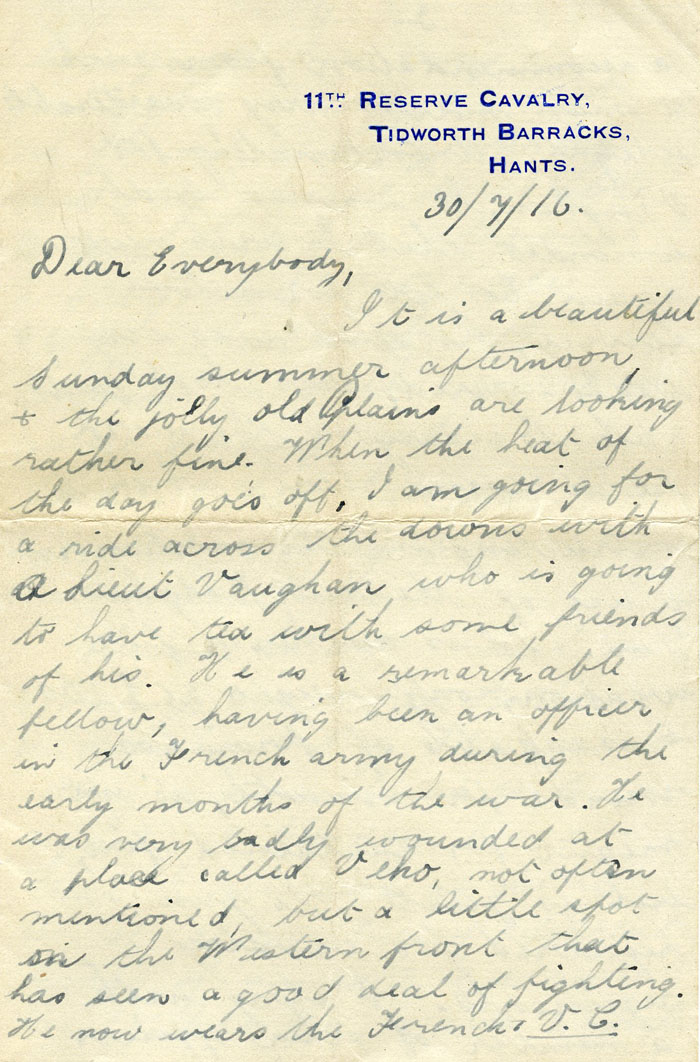 11TH RESERVE CAVALRY,
TIDWORTH BARRACKS,
HANTS.
30/7/16.
Dear Everybody,
It is a beautiful
Sunday summer afternoon,
+ the jolly old plains are looking
rather fine. When the heat of
the day goes off, I am going for
a ride across the downs with
a Lieut Vaughan who is going
to have tea with some friends
of his. He is a remarkable
fellow, having been an officer
in the French army during the
early months of the war. He
was very badly wounded at
a place called Veho, not often
mentioned, but a little spot
on the Western front that
has seen a good deal of fighting.
He now wears the French V.C.